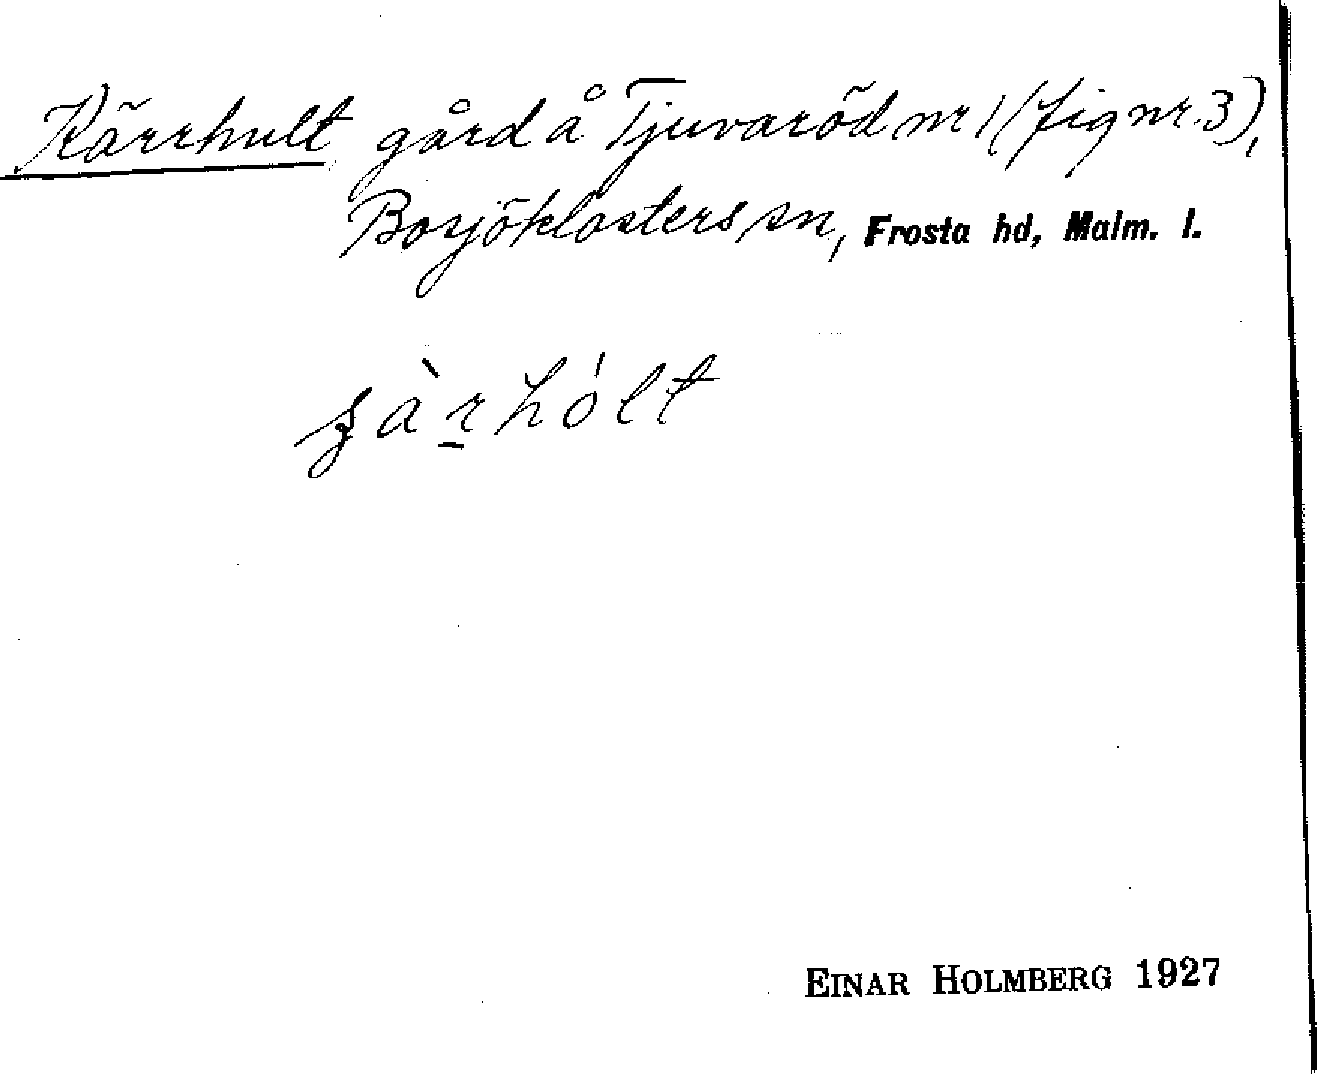 Kärrhult gård å Tjuvaröd nr 1 (fig nr. 3),
Bosjöklosters sn, Frosta hd, Malm. l.
EINAR HOLMBERG 1927